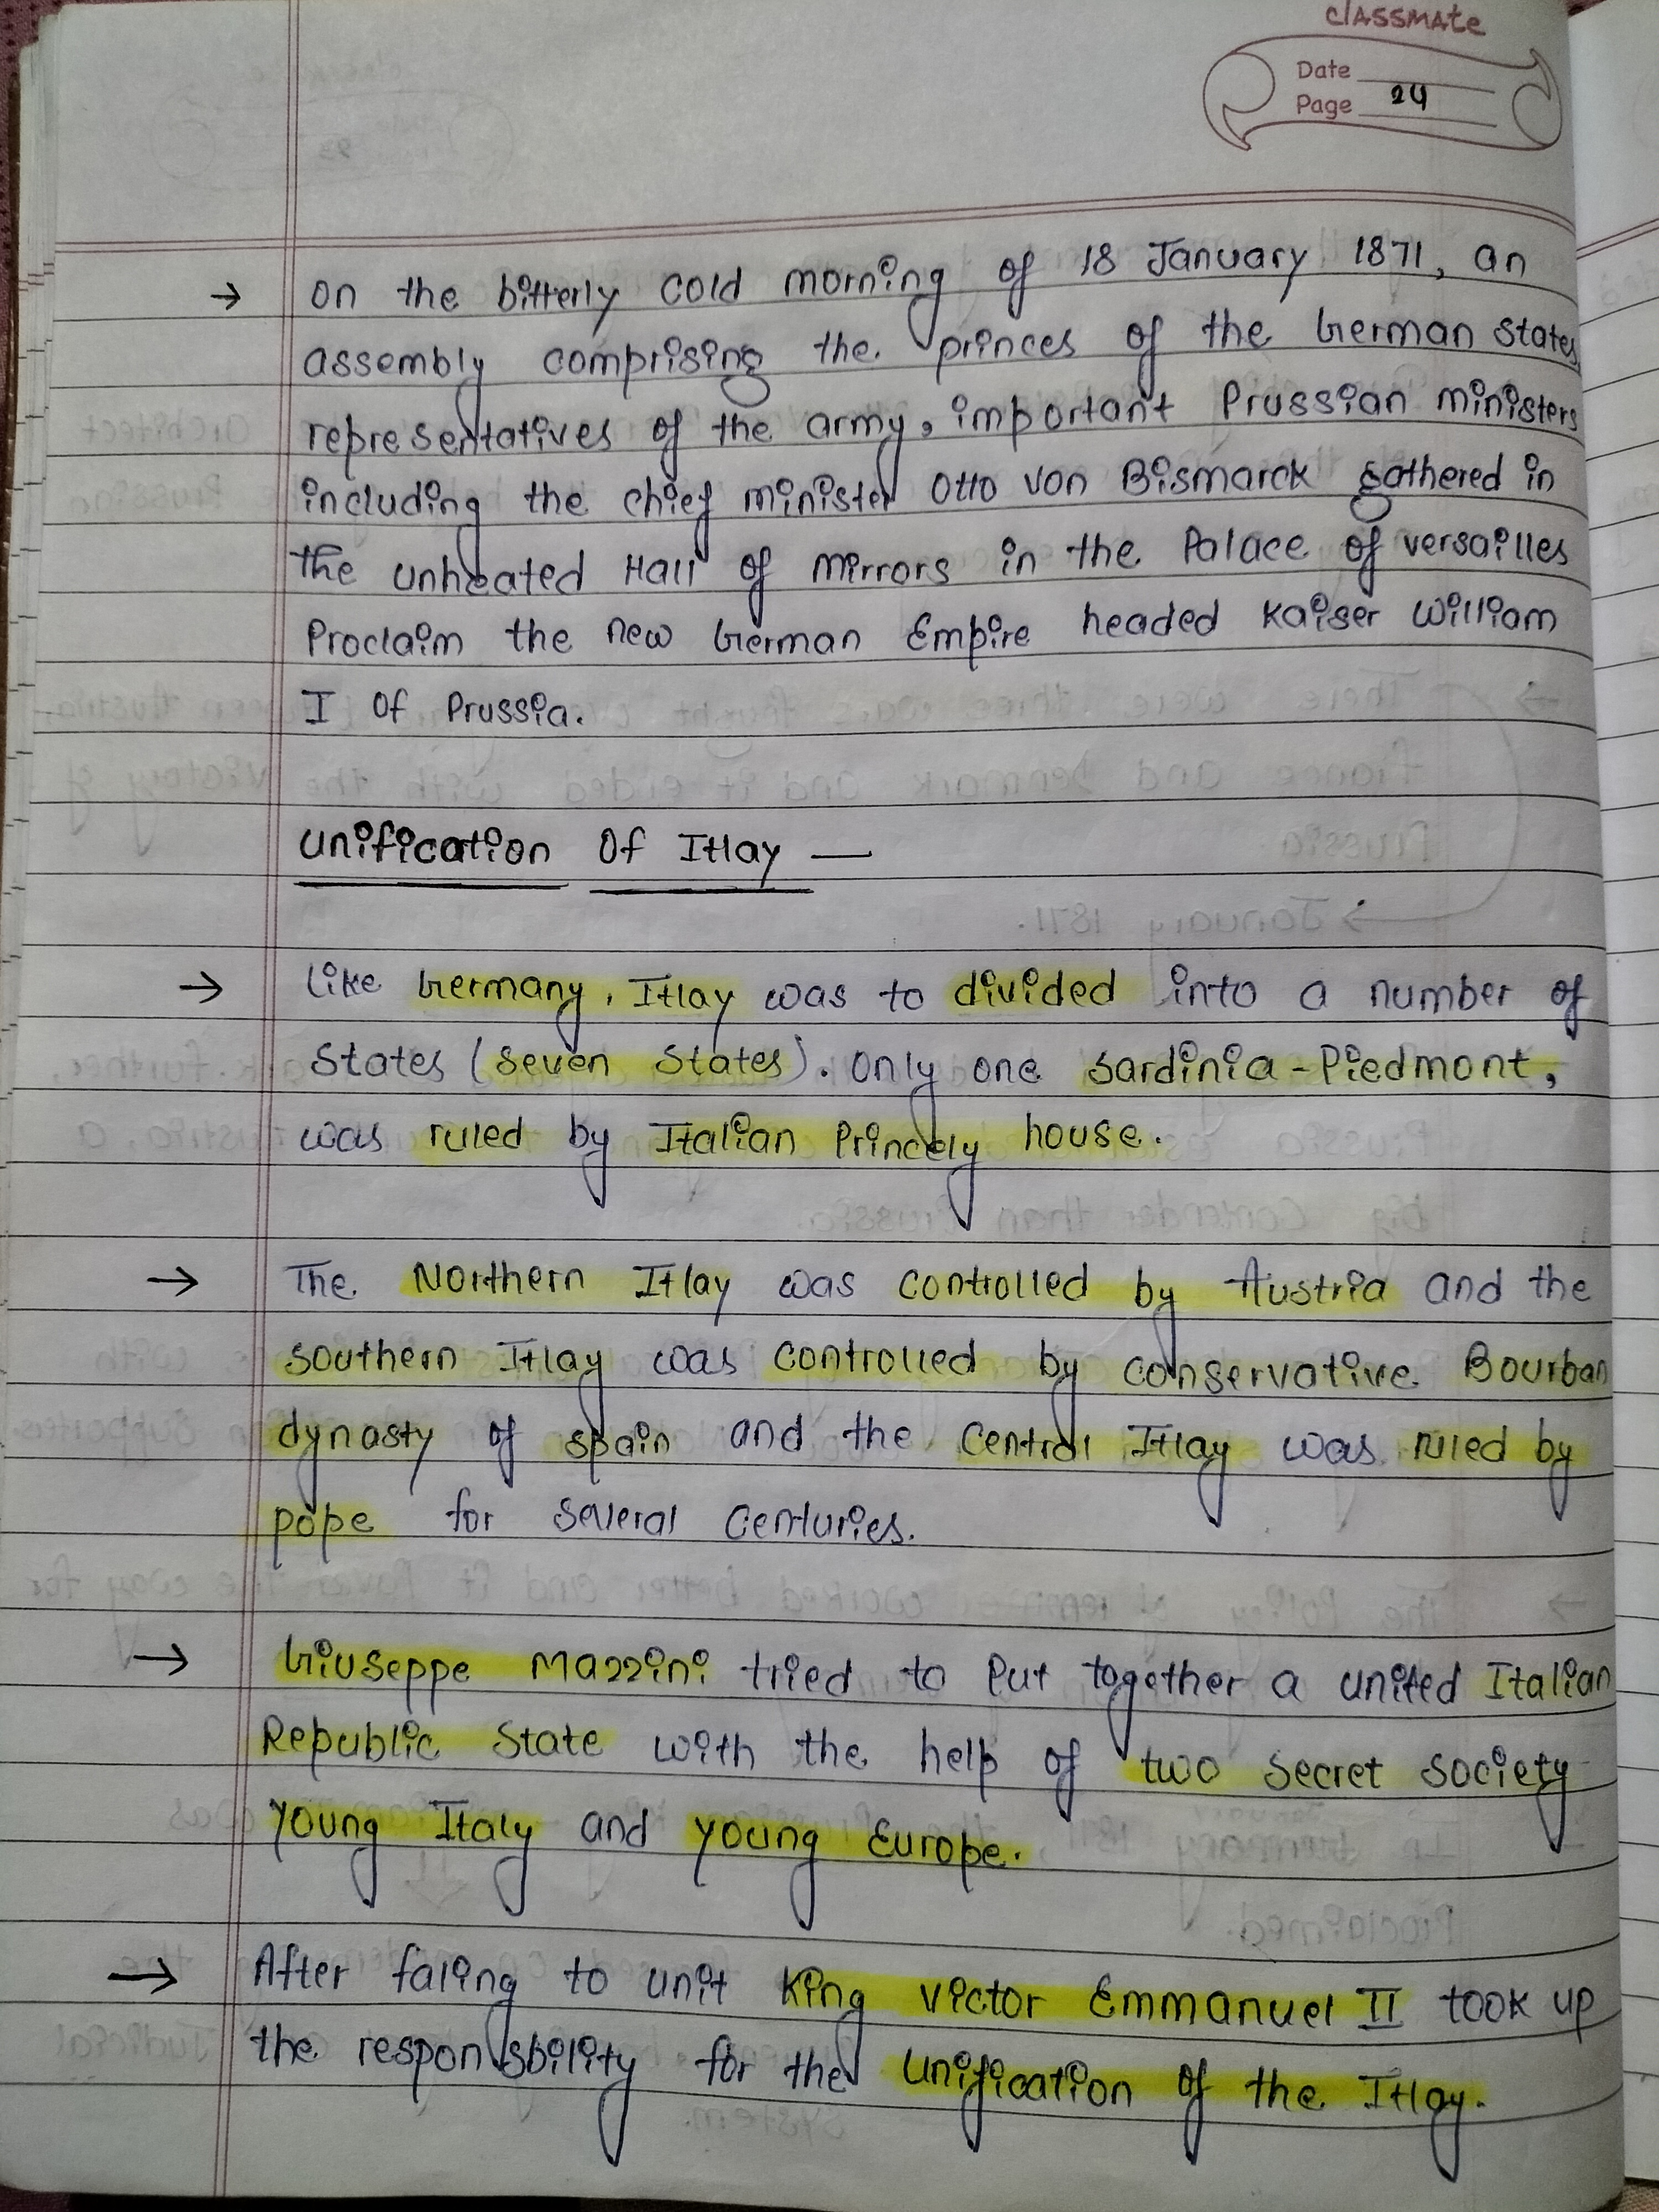 classmate
Date
Page 24
→ on the bitterly cold morning of 18 January 1871, an
assembly comprising the princes of the German states
representatives of the army, important Prussian ministers
including the chief minister Otto von Bismarck gathered in
the unheated Hall of Mirrors in the Palace of versailles
Proclaim the new German Empire headed Kaiser William
I of Prussia.
unification of Itlay —
→ Like Germany, Itlay was to divided into a number of
States (seven States). Only one Sardinia-Piedmont,
was ruled by Italian Princely house.
→ The Northern Itlay was controlled by Austria and the
southern Itlay was controlled by conservative Bourban
dynasty of spain and the Central Itlay was ruled by
pope for several centuries.
→ Giuseppe Mazzini tried to Put together a united Italian
Republic State with the help of two secret society
young Italy and young Europe.
→ After faling to unit King victor Emmanuel II took up
the responsbility for the unification of the Itlay.